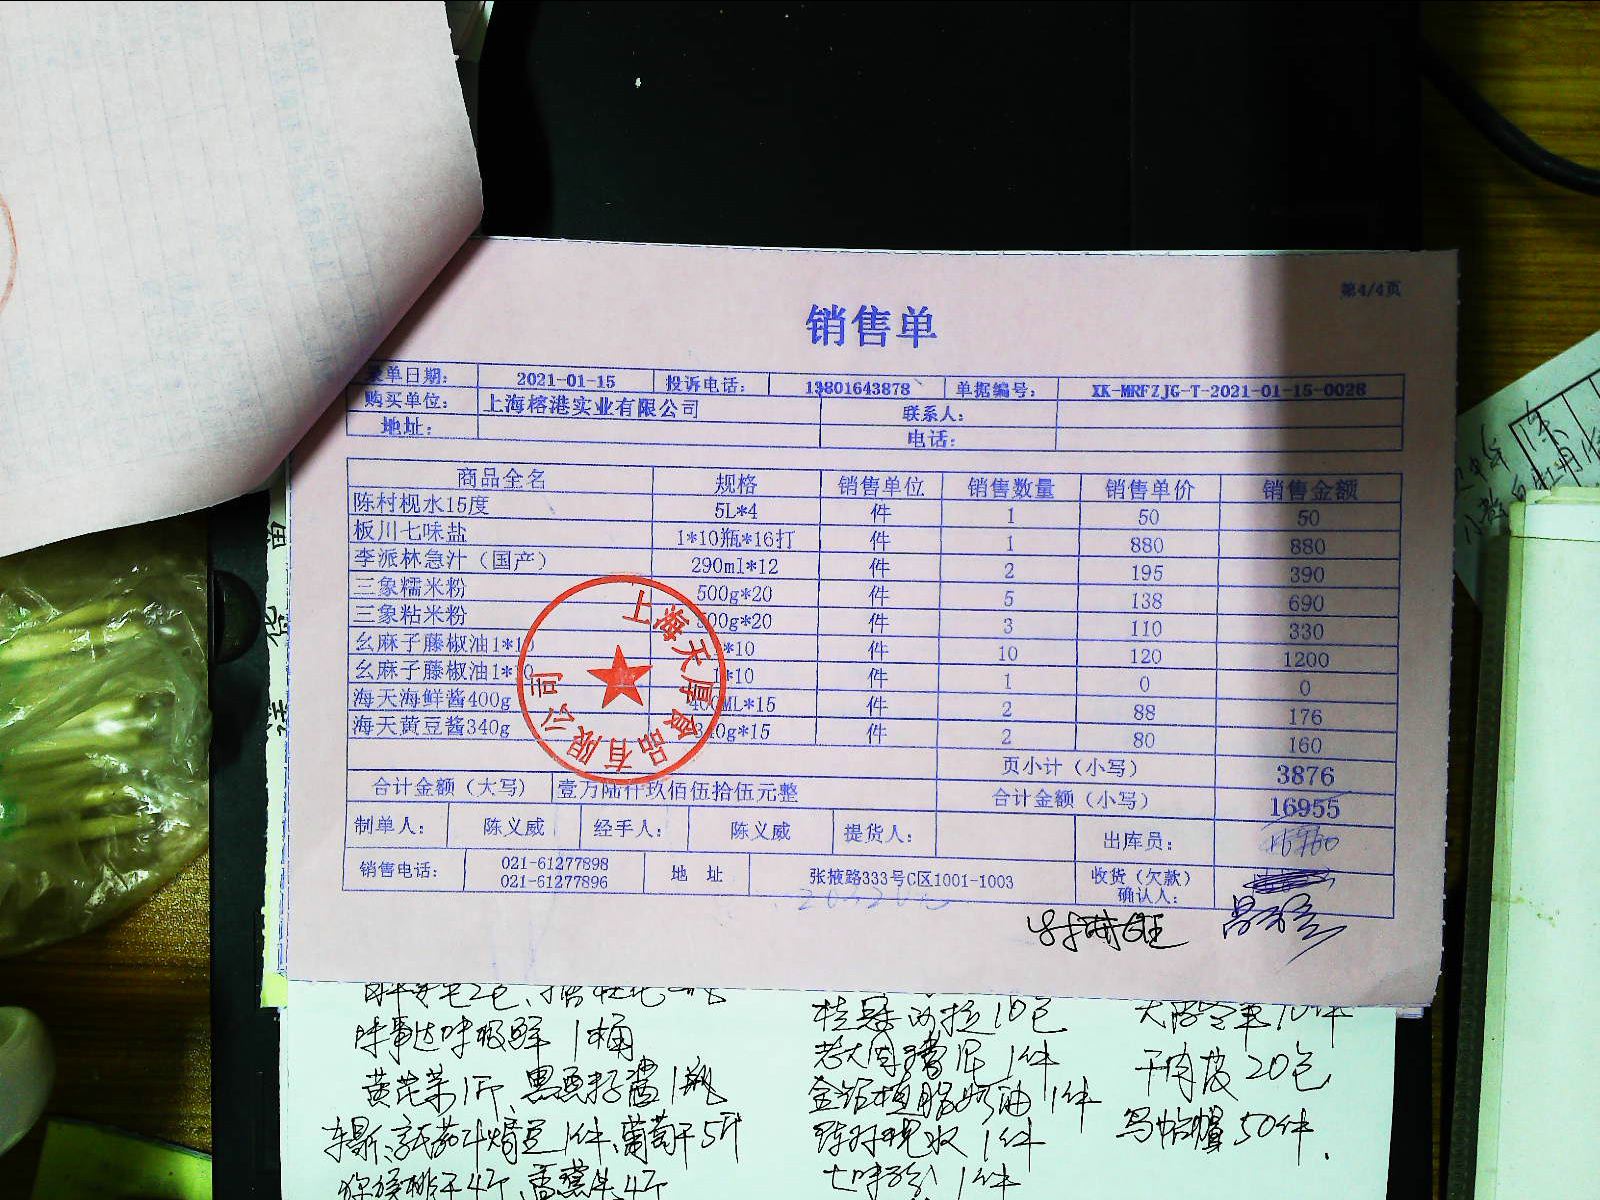 第4/4页
销售单
录单日期： 2021-01-15 投诉电话： 13801643878 单据编号： XK-MRFZJG-T-2021-01-15-0028
购买单位： 上海榕港实业有限公司 联系人：
地址： 电话：
商品全名 规格 销售单位 销售数量 销售单价 销售金额
陈村枧水15度 5L*4 件 1 50 50
板川七味盐 1*10瓶*16打 件 1 880 880
李派林急汁（国产） 290ml*12 件 2 195 390
三象糯米粉 500g*20 件 5 138 690
三象粘米粉 500g*20 件 3 110 330
幺麻子藤椒油1*10 1*10 件 10 120 1200
幺麻子藤椒油1*10 1*10 件 1 0 0
海天海鲜酱400g 400ML*15 件 2 88 176
海天黄豆酱340g 340g*15 件 2 80 160
页小计（小写） 3876
合计金额（大写） 壹万陆仟玖佰伍拾伍元整 合计金额（小写） 16955
制单人： 陈义威 经手人： 陈义威 提货人： 出库员：
销售电话： 021-61277898 地 址 张掖路333号C区1001-1003 收货（欠款）
021-61277896 确认人：
上海天厚食品有限公司
味事达味极鲜 1桶
桂冠沙拉10包
老大同糟泥 1件
干肉皮 20包
金钻植脂奶油 1件
陈村枧水 1件
50件.
七味粉 1件
葡萄干5斤